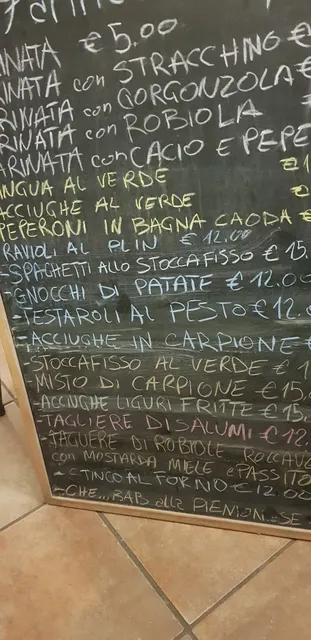 INATA €5.00
INATA con STRACCHINO €
RINATA con GORGONZOLA €
RINATA con ROBIOLA
ARINATA con CACIO E PEPE
INGUA AL VERDE
ACCIUGHE AL VERDE
PEPERONI IN BAGNA CAODA €
RAVIOLI AL PLIN €12.00
-SPAGHETTI ALLO STOCCAFISSO €15.
-GNOCCHI DI PATATE €12.00
-TESTAROLI AL PESTO €12.
-ACCIUGHE IN CARPIONE €
-STOCCAFISSO AL VERDE €1
-MISTO DI CARPIONE €15,
-ACCIUGHE LIGURI FRITTE €15.
-TAGLIERE DI SALUMI €12
-TAGLIERE DI ROBIOLE ROCCAV
con MOSTARDA MIELE e PASSITO
-STINCO AL FORNO €12.00
-CHE... BAB alla PIEMON... SE